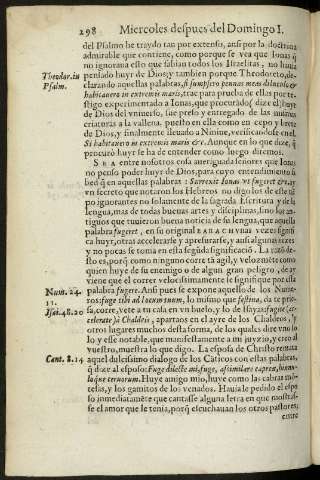 298 Miercoles despues del Domingo I.
del Psalmo he traydo tan por extenso, ansi por la doctrina
admirable que contiene, como porque se vea que Ionas q̃
no ignoraua esto que sabian todos los Israelitas, no huuo
Theodor. in pensado huyr de Dios; y tambien porque Theodoreto, de-
Psalm. clarando aquellas palabras, si sumpsero pennas meas diluculo &
habitauero in extremis maris, trae para prueba de ellas por tes-
tigo experimentado a Ionas, que procurãdose dize el huyr
de Dios del vniuerso, fue preso y entregado de las mismas
criaturas a la vallena puesto en ella como en cepo y brete
de Dios, y finalmente lleuado a Niniue, verificandose en el.
Si habitauero in extremis maris &c. Aunque en lo que dize, q̃
procurò huyr se ha de entender como luego diremos.
SEA entre nosotros cosa aueriguada señores que Ionas
no penso poder huyr de Dios, para cuyo entendimiento sa
bed q̃ en aquellas palabras: Surrexit Ionas vt fugeret &c. ay
vn secreto que notaron los Hebreos no digo los de este tiẽ
po ignorantes no solamente de la sagrada Escritura y de la
lengua, mas de todas buenas artes y disciplinas, sino los an-
tiguos que tuuieron buena noticia de su lengua, que aquella
palabra fugeret, en su original BARACH vnas vezes signi
ca huyr, otras accelerarse y apresurarse, y aun algunas vezes
y no pocas se toma en esta segũda significaciõ. La razõ de-
sto es, porq̃ como ninguno corre tã agil, y velozmẽte como
quien huye de su enemigo o de algun gran peligro, de ay
viene que el correr velocissimamente se significe por esta
Num. 24. palabra fugere. Ansi pues se expone aquello de los Nume-
11. ros: fuge tibi ad locum tuum, lo mismo que festina, date prie-
Isai. 48. 20 sa, corre, vete a tu casa en vn buelo, y lo de Isayas: fugite (ac-
celerate) à Chaldeis, apartaos en el ayre de los Chaldeos. Y
otros lugares muchos desta forma, de los quales dire vno so
lo y esse notable, que manifiestamente a mi juyzio, y creo al
vuestro, muestra lo que digo. La esposa de Christo remata
Cant. 8. 14 aquel dulcissimo dialogo de los Cãticos con estas palabras,
q̃ dize al esposo: Fuge dilecte mi, fuge, assimilare capreæ, hinnu-
loque ceruorum. Huye amigo mio, huye como las cabras mõ-
tesas, y los gamitos de los venados. Hauiale pedido el espo
so immediatamẽte que cantasse alguna letra en que mostras-
se el amor que le tenia, porq̃ escuchauan los otros pastores;
entre